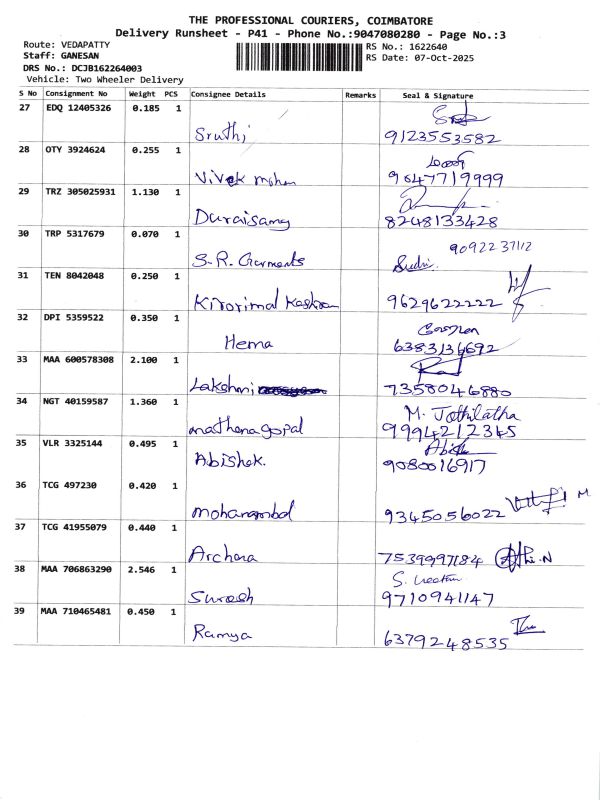 THE PROFESSIONAL COURIERS, COIMBATORE
Delivery Runsheet - P41 - Phone No.:9047080280 - Page No.:3
Route: VEDAPATTY
Staff: GANESAN
DRS No.: DCJB162264003
Vehicle: Two Wheeler Delivery
RS No.: 1622640
RS Date: 07-Oct-2025
S No Consignment No Weight PCS Consignee Details Remarks Seal & Signature
27 EDQ 12405326 0.185 1
Sruthi 9123553582
28 OTY 3924624 0.255 1
Vivek mohan 9047719999
29 TRZ 305025931 1.130 1
Duraisamy 8248133428
30 TRP 5317679 0.070 1
9092237112
S.R. Garments
31 TEN 8042048 0.250 1
Kirorimal 9629622222
32 DPI 5359522 0.350 1
Hema 6383134692
33 MAA 600578308 2.100 1
Lakshmi 7358046880
34 NGT 40159587 1.360 1
M. Jothilatha
mathanagopal 9994212345
35 VLR 3325144 0.495 1
Abishek. 9080016917
36 TCG 497230 0.420 1
9345056022
37 TCG 41955079 0.440 1
Archana 7539997184
38 MAA 706863290 2.546 1
Suresh 9710941147
39 MAA 710465481 0.450 1
Ramya 6379248535